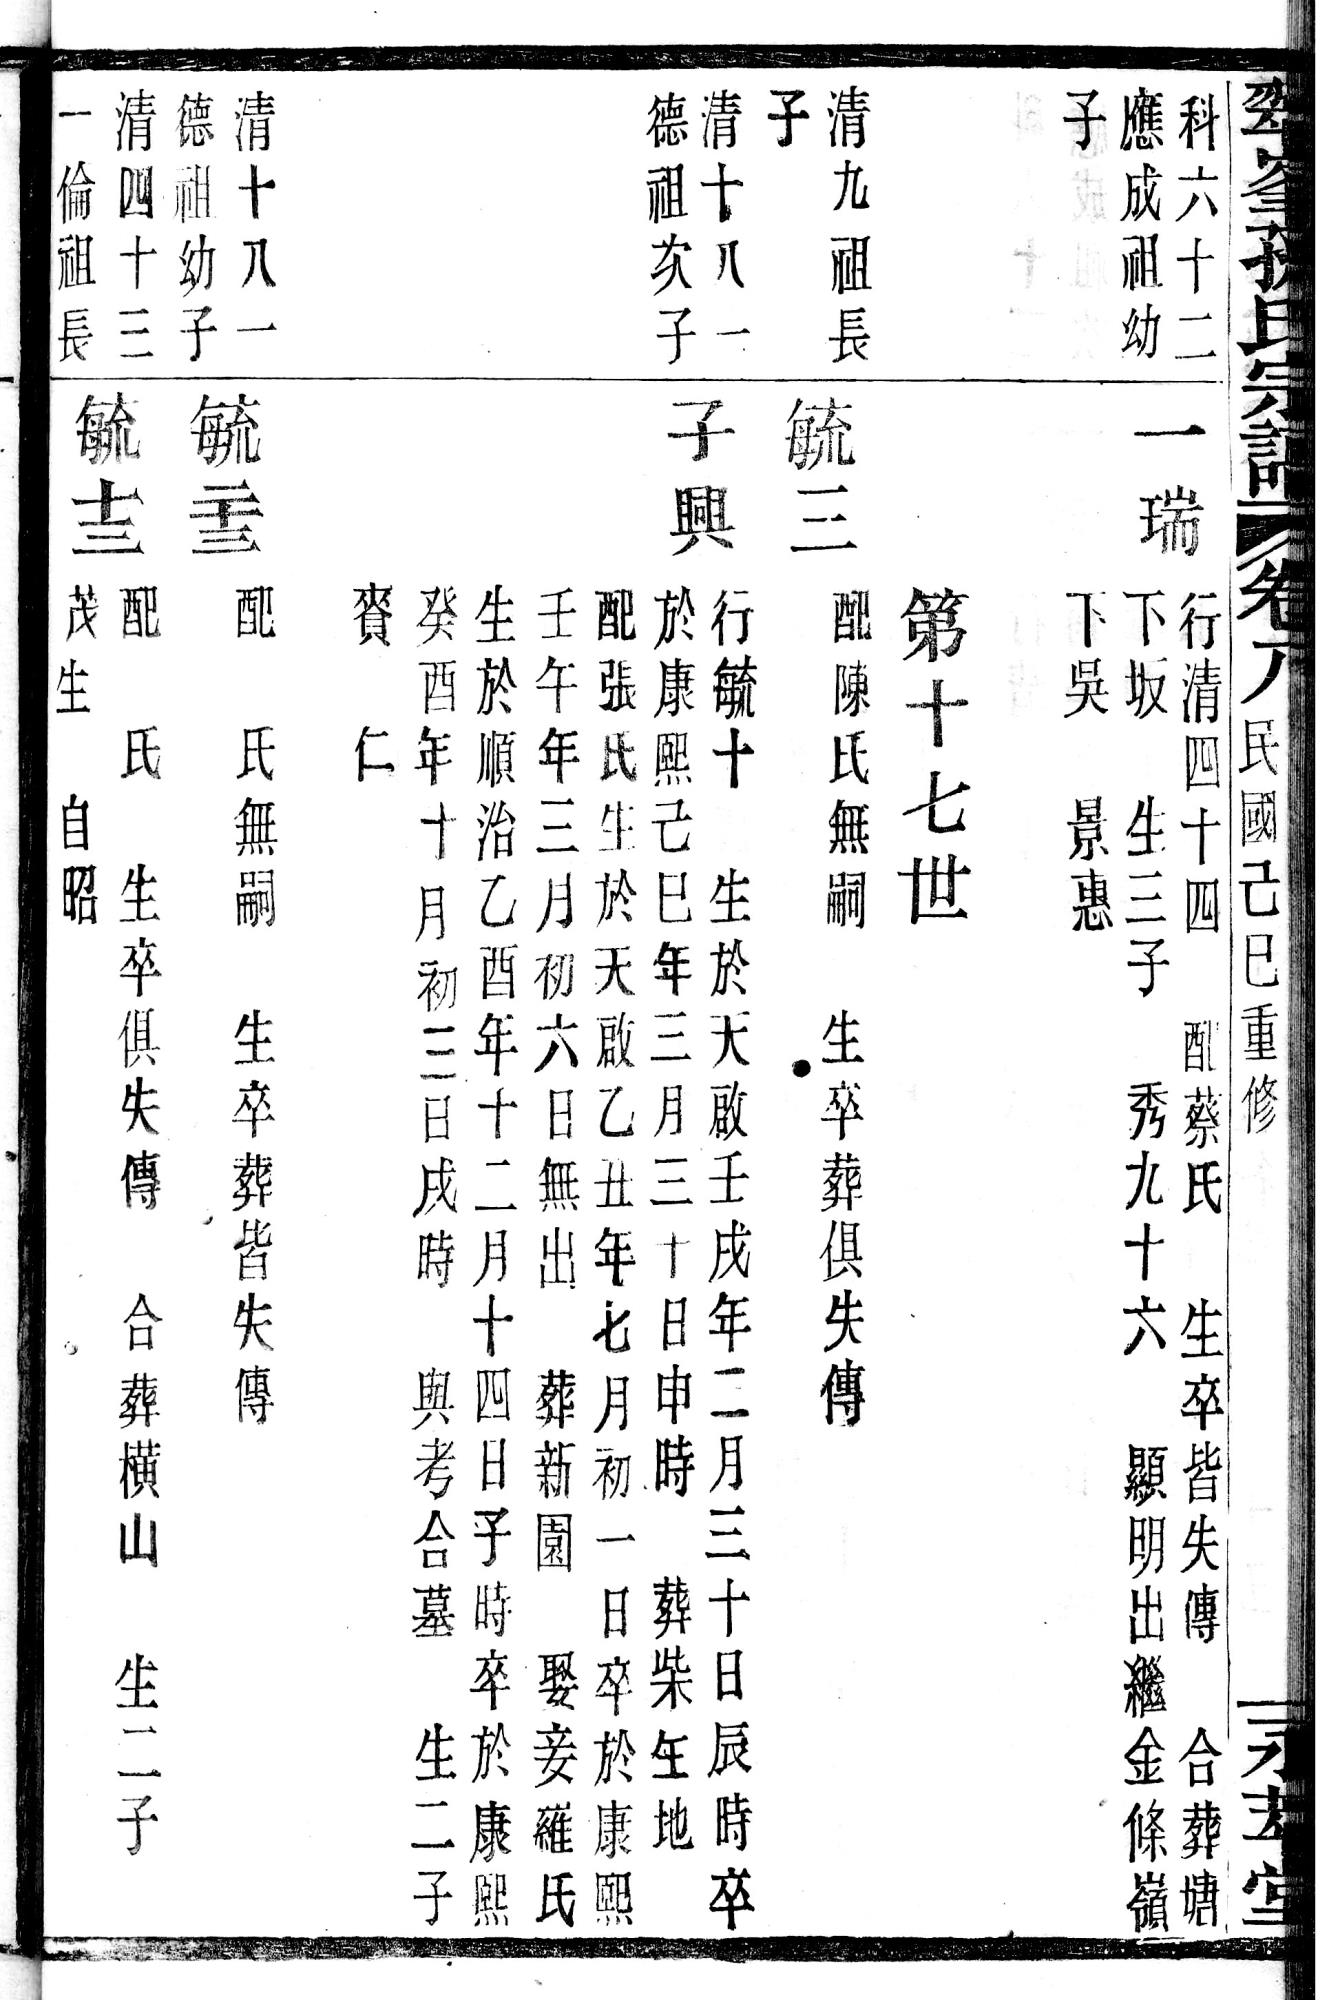 孫氏宗譜 卷八 民國己巳重修
堂
科六十二
應成祖幼
子
一瑞
行清四十四 配蔡氏 生卒皆失傳 合葬塘
下坂 生三子 秀九十六 顯明出繼金條嶺
下吳 景惠
第十七世
清九祖長
子
毓三
配陳氏無嗣 生卒葬俱失傳
清十八一
德祖次子
子興
行毓十 生於天啟壬戌年二月三十日辰時卒
於康熙己巳年三月三十日申時 葬柴午地
配張氏生於天啟乙丑年七月初一日卒於康熙
壬午年三月初六日無出 葬新園 娶妾羅氏
生於順治乙酉年十二月十四日子時卒於康熙
癸酉年十月初三日戌時 與考合墓 生二子
賚 仁
清十八一
德祖幼子
毓二十三
配 氏無嗣 生卒葬皆失傳
清四十三
一倫祖長
毓十三
配 氏 生卒俱失傳 合葬橫山 生二子
茂生 自昭